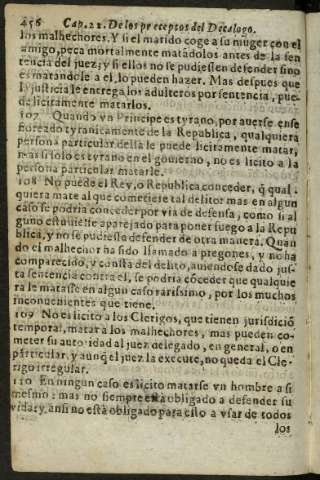 456 Cap. 22. De los preceptos del Decalogo.
los malhechores. Y si el marido coge a su muger con el
amigo, peca mortalmente matãdolos antes de la sen
tencia del juez; y si ellos no se pudiessen defender sino
es matandole a el, lo pueden hazer. Mas despues que
la justicia le entrega los adulteros por sentencia, pue-
de licitamente matarlos.
107 Quando vn Principe es tyrano, por auerse ense
ñoreado tyranicamente de la Republica, qualquiera
persona particular della le puede licitamente matar,
mas si solo es tyrano en el gouierno, no es licito a la
persona particular matarle.
108 No puede el Rey, o Republica conceder, q̃ qual-
quiera mate al que cometiere tal delito: mas en algun
caso se podria conceder por via de defensa, como si al
guno estuuiesse aparejado para poner fuego a la Repu
blica, y no se pudiesse defender de otra manera. Quan
do el malhechor ha sido llamado a pregones, y no ha
comparecido, y consta del delito, auiendose dado jus-
ta sentencia contra el, se podria cõceder que qualquie
ra le matasse en algun caso rarissimo, por los muchos
inconuenientes que tiene.
109 No es licito a los Clerigos, que tienen jurisdiciõ
temporal, matar a los malhechores, mas pueden co-
meter su autoridad al juez delegado, en general, o en
particular, y aunq̃ el juez la execute, no queda el Cle-
rigo irregular.
110 En ningun caso es licito matarse vn hombre a si
mesmo: mas no siempre està obligado a defender su
vida: y ansi no està obligado para ello a vsar de todos
los